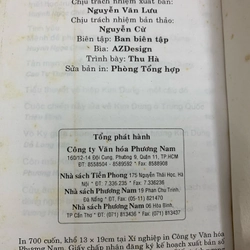 Chịu trách nhiệm xuất bản:
Nguyễn Văn Lưu
Chịu trách nhiệm bản thảo:
Nguyễn Cừ
Biên tập: Ban biên tập
Bìa: AZDesign
Trình bày: Thu Hà
Sửa bản in: Phòng Tổng hợp
Tổng phát hành
Công ty Văn hóa Phương Nam
160/13-14 Đội Cung, Phường 9, Quận 11, TP.HCM
ĐT: 8558504 - 8589592 * Fax:
Nhà sách Tiền Phong 175 Nguyễn Thái Học, Hà
Nội * ĐT: 7.336.235 * Fax: 7.336.236
Nhà sách Phương Nam 19 Phan Chu Trinh,
Đà Nẵng * ĐT:
Nhà sách Phương Nam 06 Hòa Bình,
TP Cần Thơ * ĐT: (071) 813436 * Fax: (071) 813437
In 700 cuốn, khổ 13 x 19cm tại Xí nghiệp in Công ty Văn hóa
Phương Nam. Giấy chấp nhận đăng ký kế hoạch xuất bản số